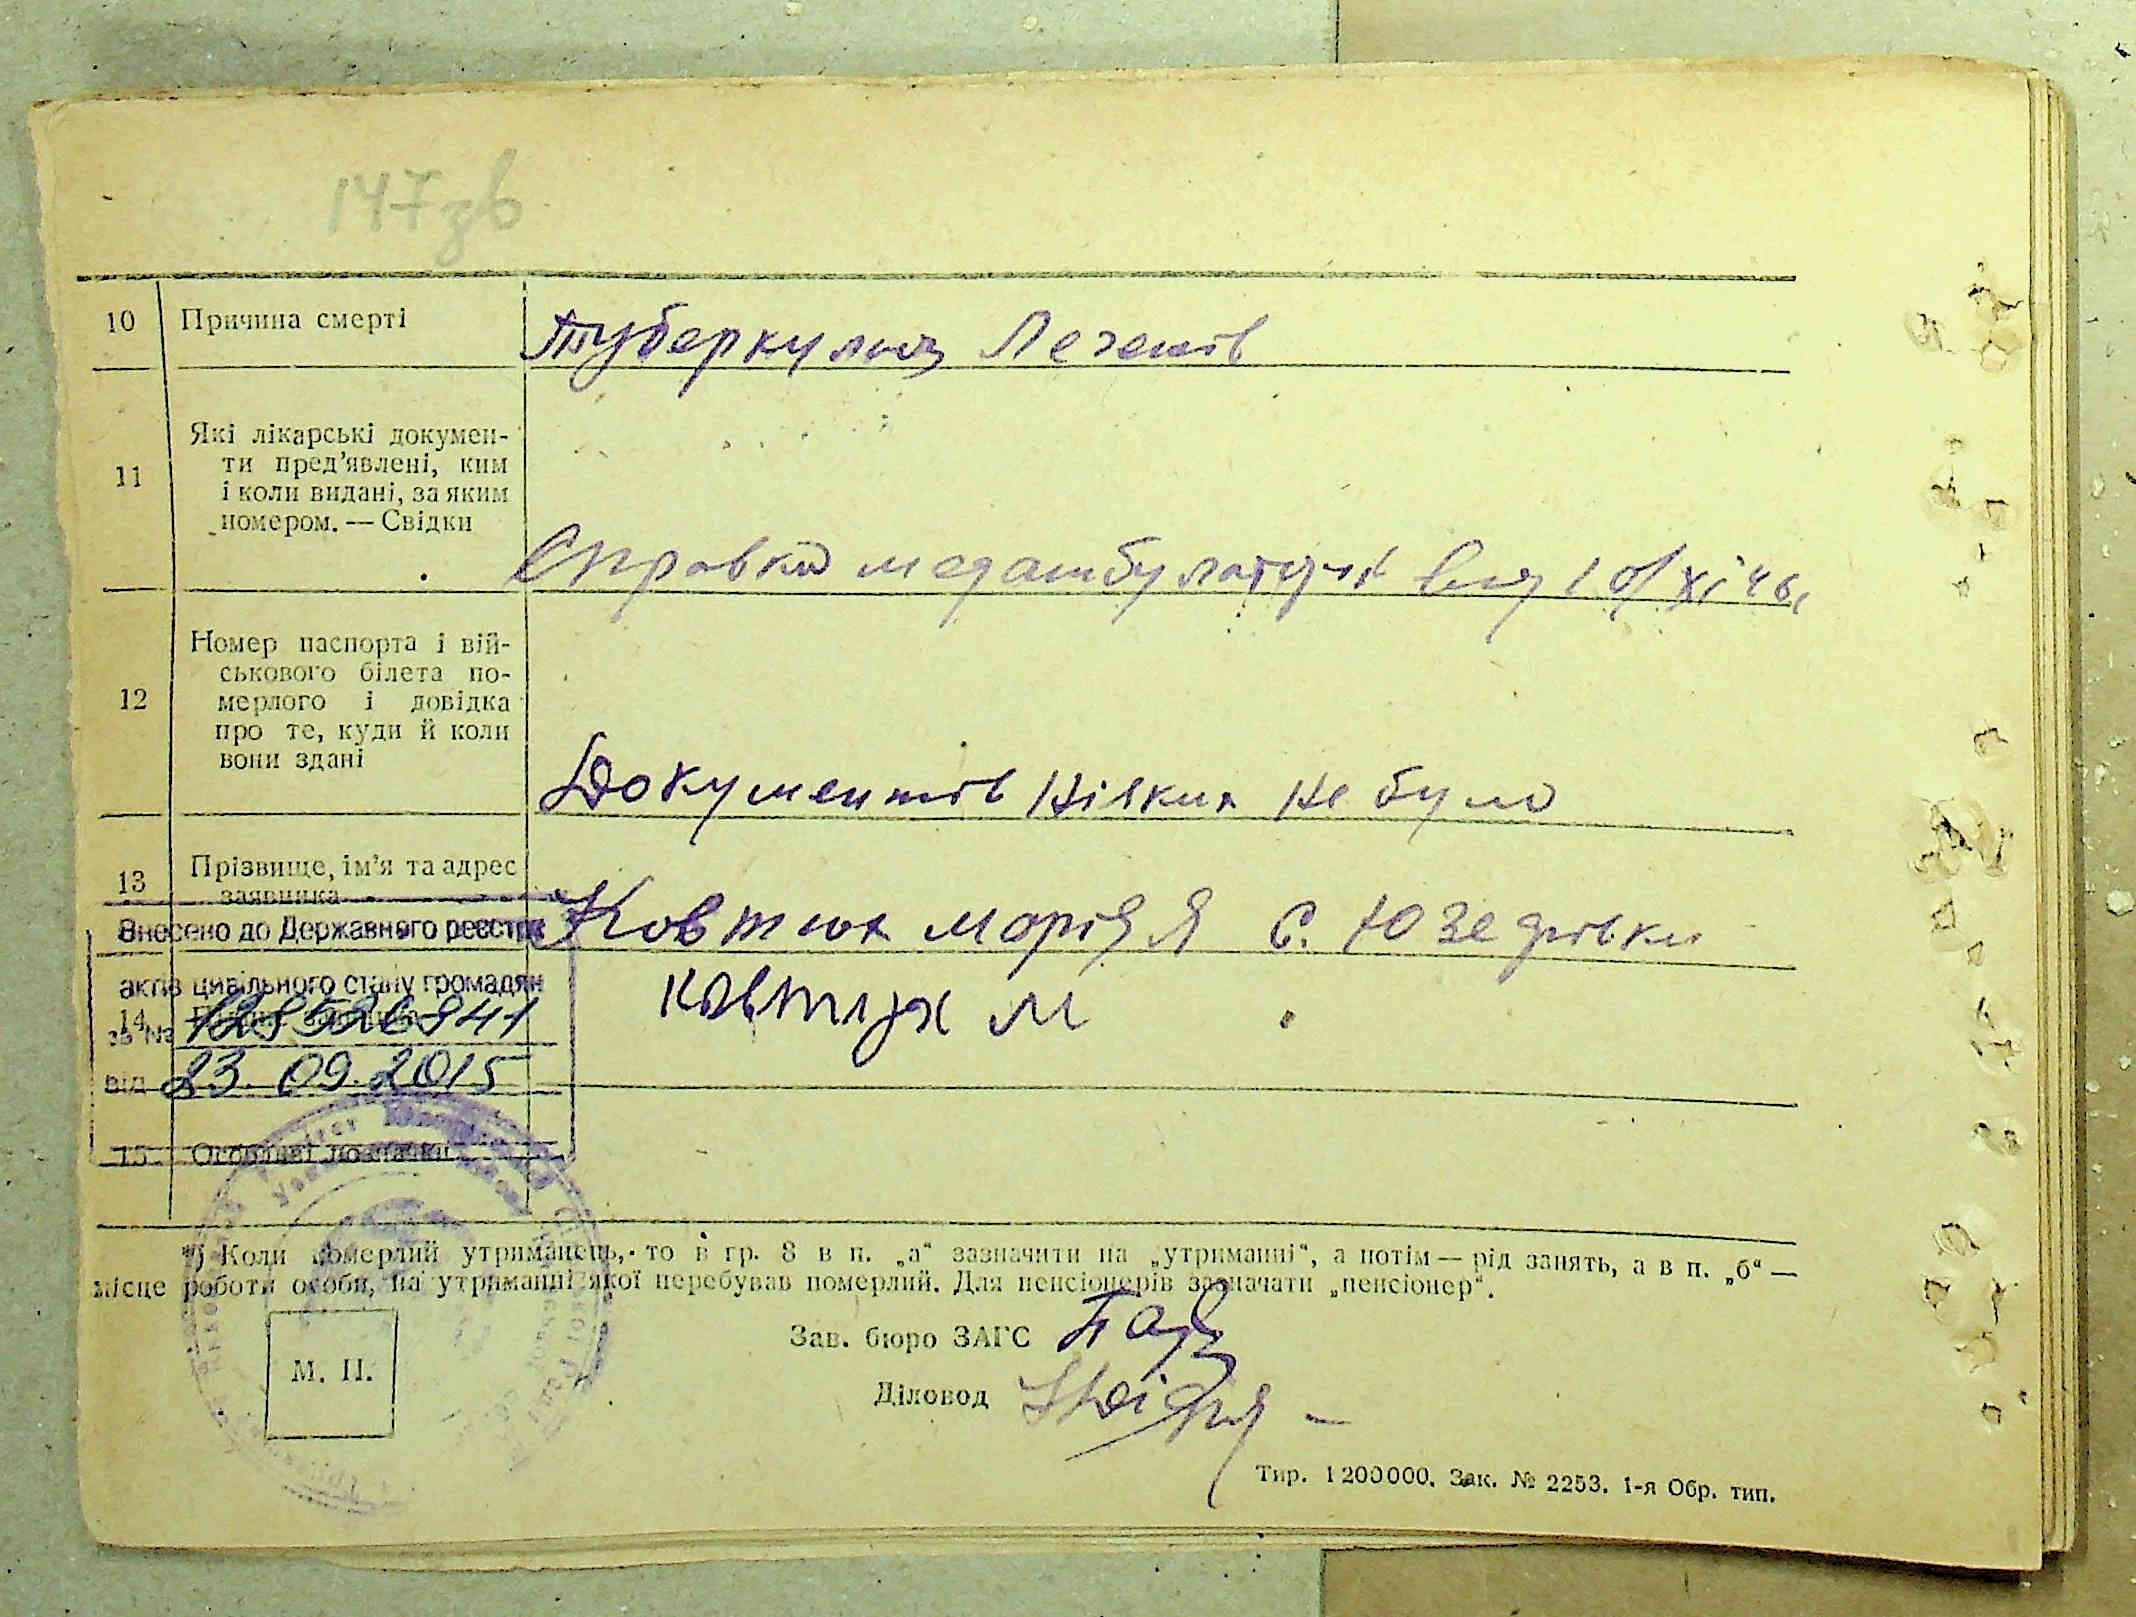 147 зв
10 Причина смерті Туберкульоз Легенів
11 Які лікарські докумен-
ти пред'явлені, ким
і коли видані, за яким
номером. — Свідки
Справка медамбулаторії від 10/XI 46,
12 Номер паспорта і вій-
ськового білета по-
мерлого і довідка
про те, куди й коли
вони здані
Документів ніяких не було
13 Прізвище, ім'я та адрес
заявника
Ковтюх Марія Я с. Юзефівки
Внесено до Державного реєстру
актів цивільного стану громадян
14
Ковтюх М
за №
від 23.09.2015
15 Особливі
*) Коли померлий утриманець, то в гр. 8 в п. „а“ зазначити на „утриманні“, а потім — рід занять, а в п. „б“ —
місце роботи особи, на утриманні якої перебував померлий. Для пенсіонерів зазначати „пенсіонер“.
Зав. бюро ЗАГС
М. П.
Діловод
Тир. 1200000. Зак. № 2253. 1-я Обр. тип.